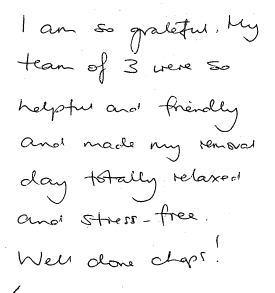 I am so grateful. My
team of 3 were so
helpful and friendly
and made my removal
day totally relaxed
and stress-free.
Well done chaps!